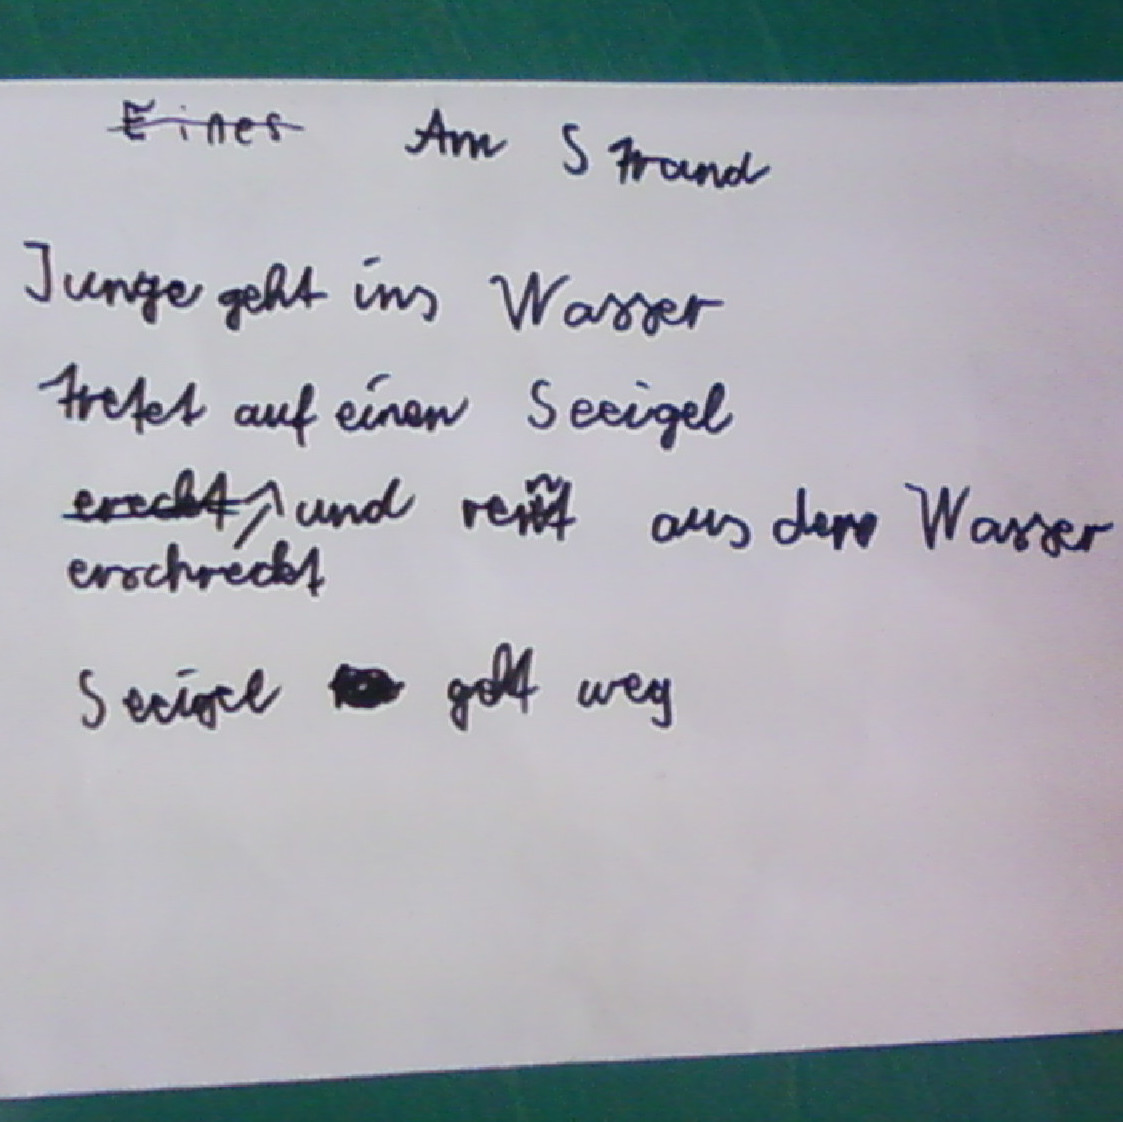 Eines Am Strand
Junge geht ins Wasser
tretet auf einen Seeigel
ereckt und rennt aus dem Wasser
erschreckt
Seeigel geht weg